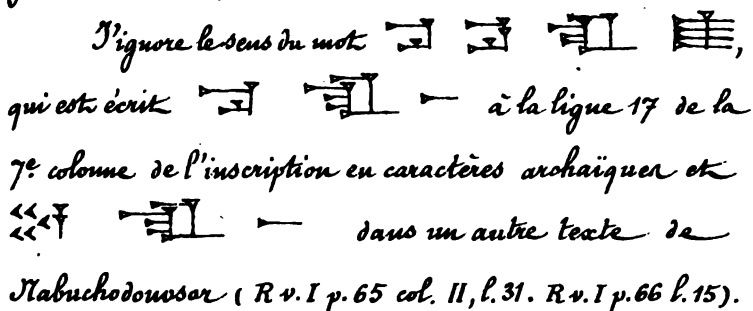 J'ignore le sens du mot ,
qui est écrit à la ligne 17 de la
7e. colonne de l'inscription en caractères archaïques et
dans un autre texte de
Nabuchodonosor ( R v. I p. 65 col. II, l. 31. R v. I p. 66 l. 15).